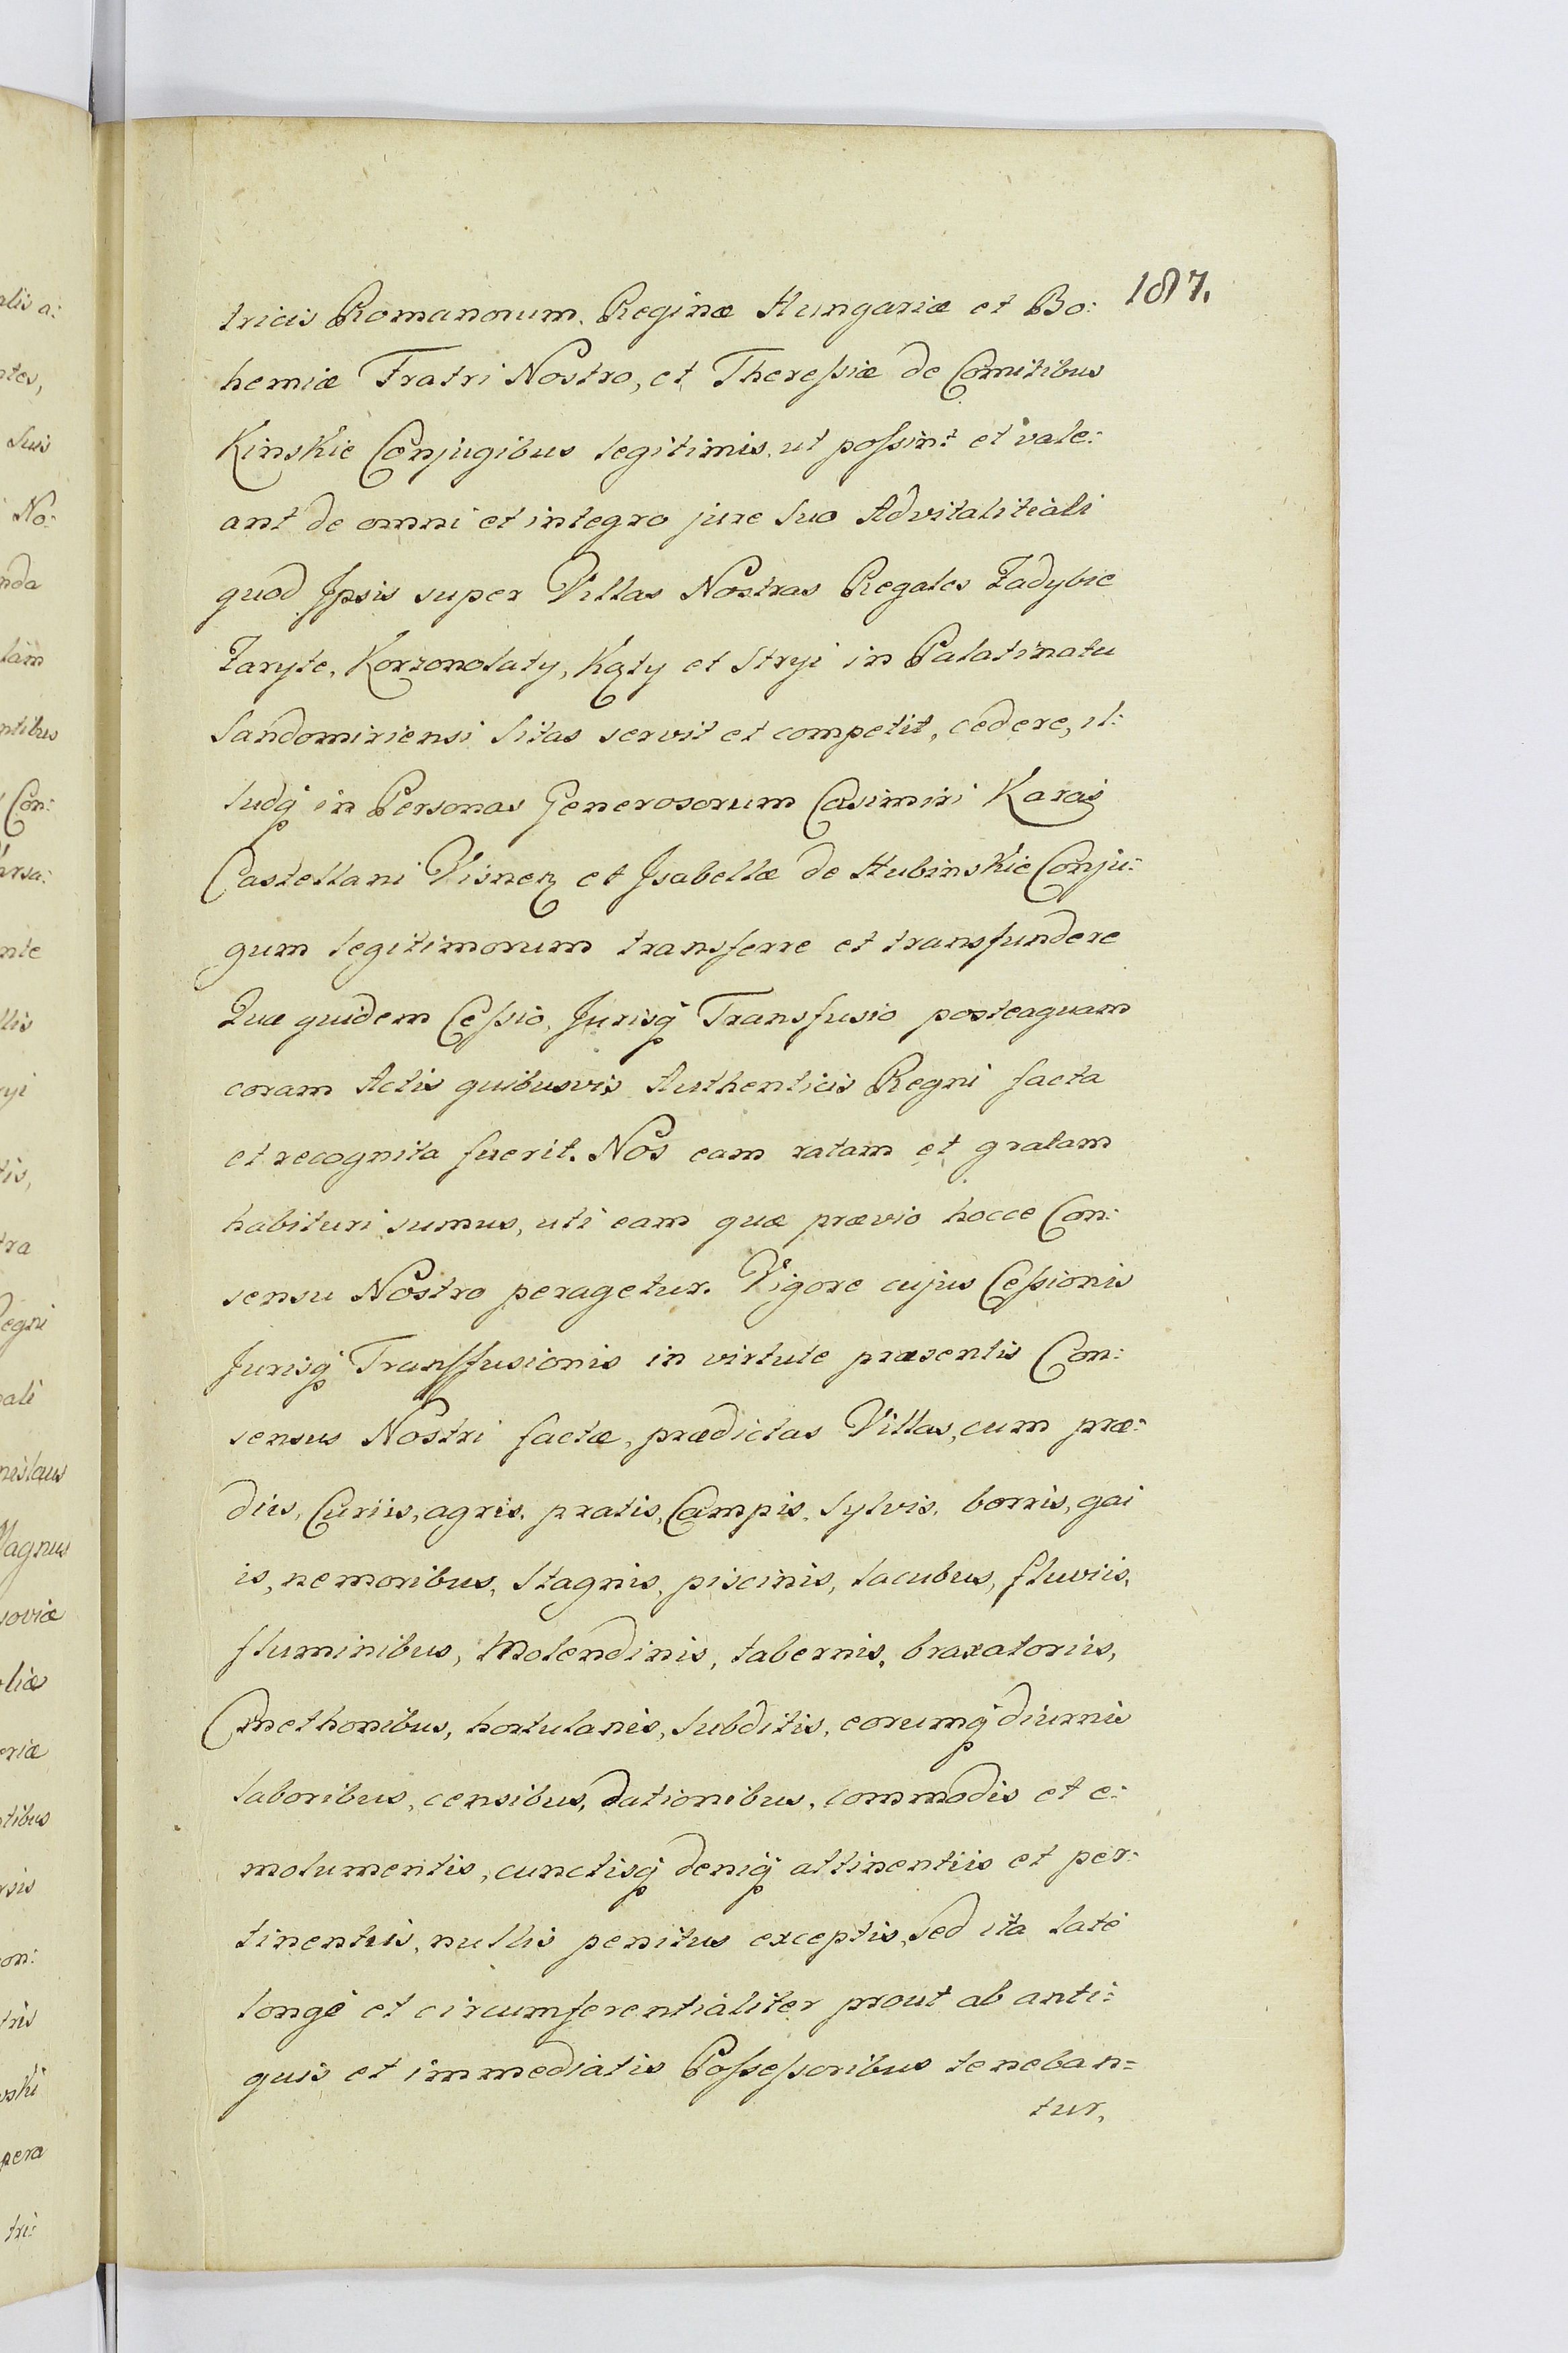 187.
tricis Romanorum, Reginæ Hungariæ et Bo:
hemiæ Fratri Nostro, et Theressiæ de Comitibus
Kinskie Conjugibus legitimis, ut possint et vale:
ant de omni et integro jure suo Advitalitiali
quod Ipsis super Villas Nostras Regales Zadybie
Zaryte, Korzonolaty, Kąty et Stryi in Palatinatu
Sandomiriensi sitas servit et competit, cedere, il:
ludq in Personas Generosorum Casimiri Karaś
Castellani Visnen et Isabellæ de Hubinskie Conju:
gum legitimorum transferre et transfundere
Quæ quidem Cessio, Jurisq Transfusio posteaquam
coram Actis quibusvis Authenticis Regni facta
et recognita fuerit. Nos eam ratam et gratam
habituri sumus, uti eam quæ prævio hocce Con:
sensu Nostro peragetur. Vigore cujus Cessionis
Jurisq Transfusionis in virtute præsentis Con:
sensus Nostri factæ, prædictas Villas, cum præ:
diis, Curiis, agris, pratis, Campis, Sylvis, borris, gai
is, nemoribus, Stagnis, piscinis, lacubus, fluviis,
fluminibus, Molendinis, tabernis, braxatoriis,
Cmethonibus, hortulanis, Subditis, eorumq diurnis
laboribus, censibus, dationibus, commodis et e:
molumentis, cunctisq deniq attinentiis et per:
tinentiis, nullis penitus exceptis, sed ita latè
longè et circumferentialiter prout ab anti:
quis et immediatis Possessoribus teneban=
tur,
alis a:
ntes,
suis
No:
nda
lam
ntibus
Con:
nte
llis
tra
Regni
nislaus
Magnus
eriæ
ntibus
on:
pera
tri: